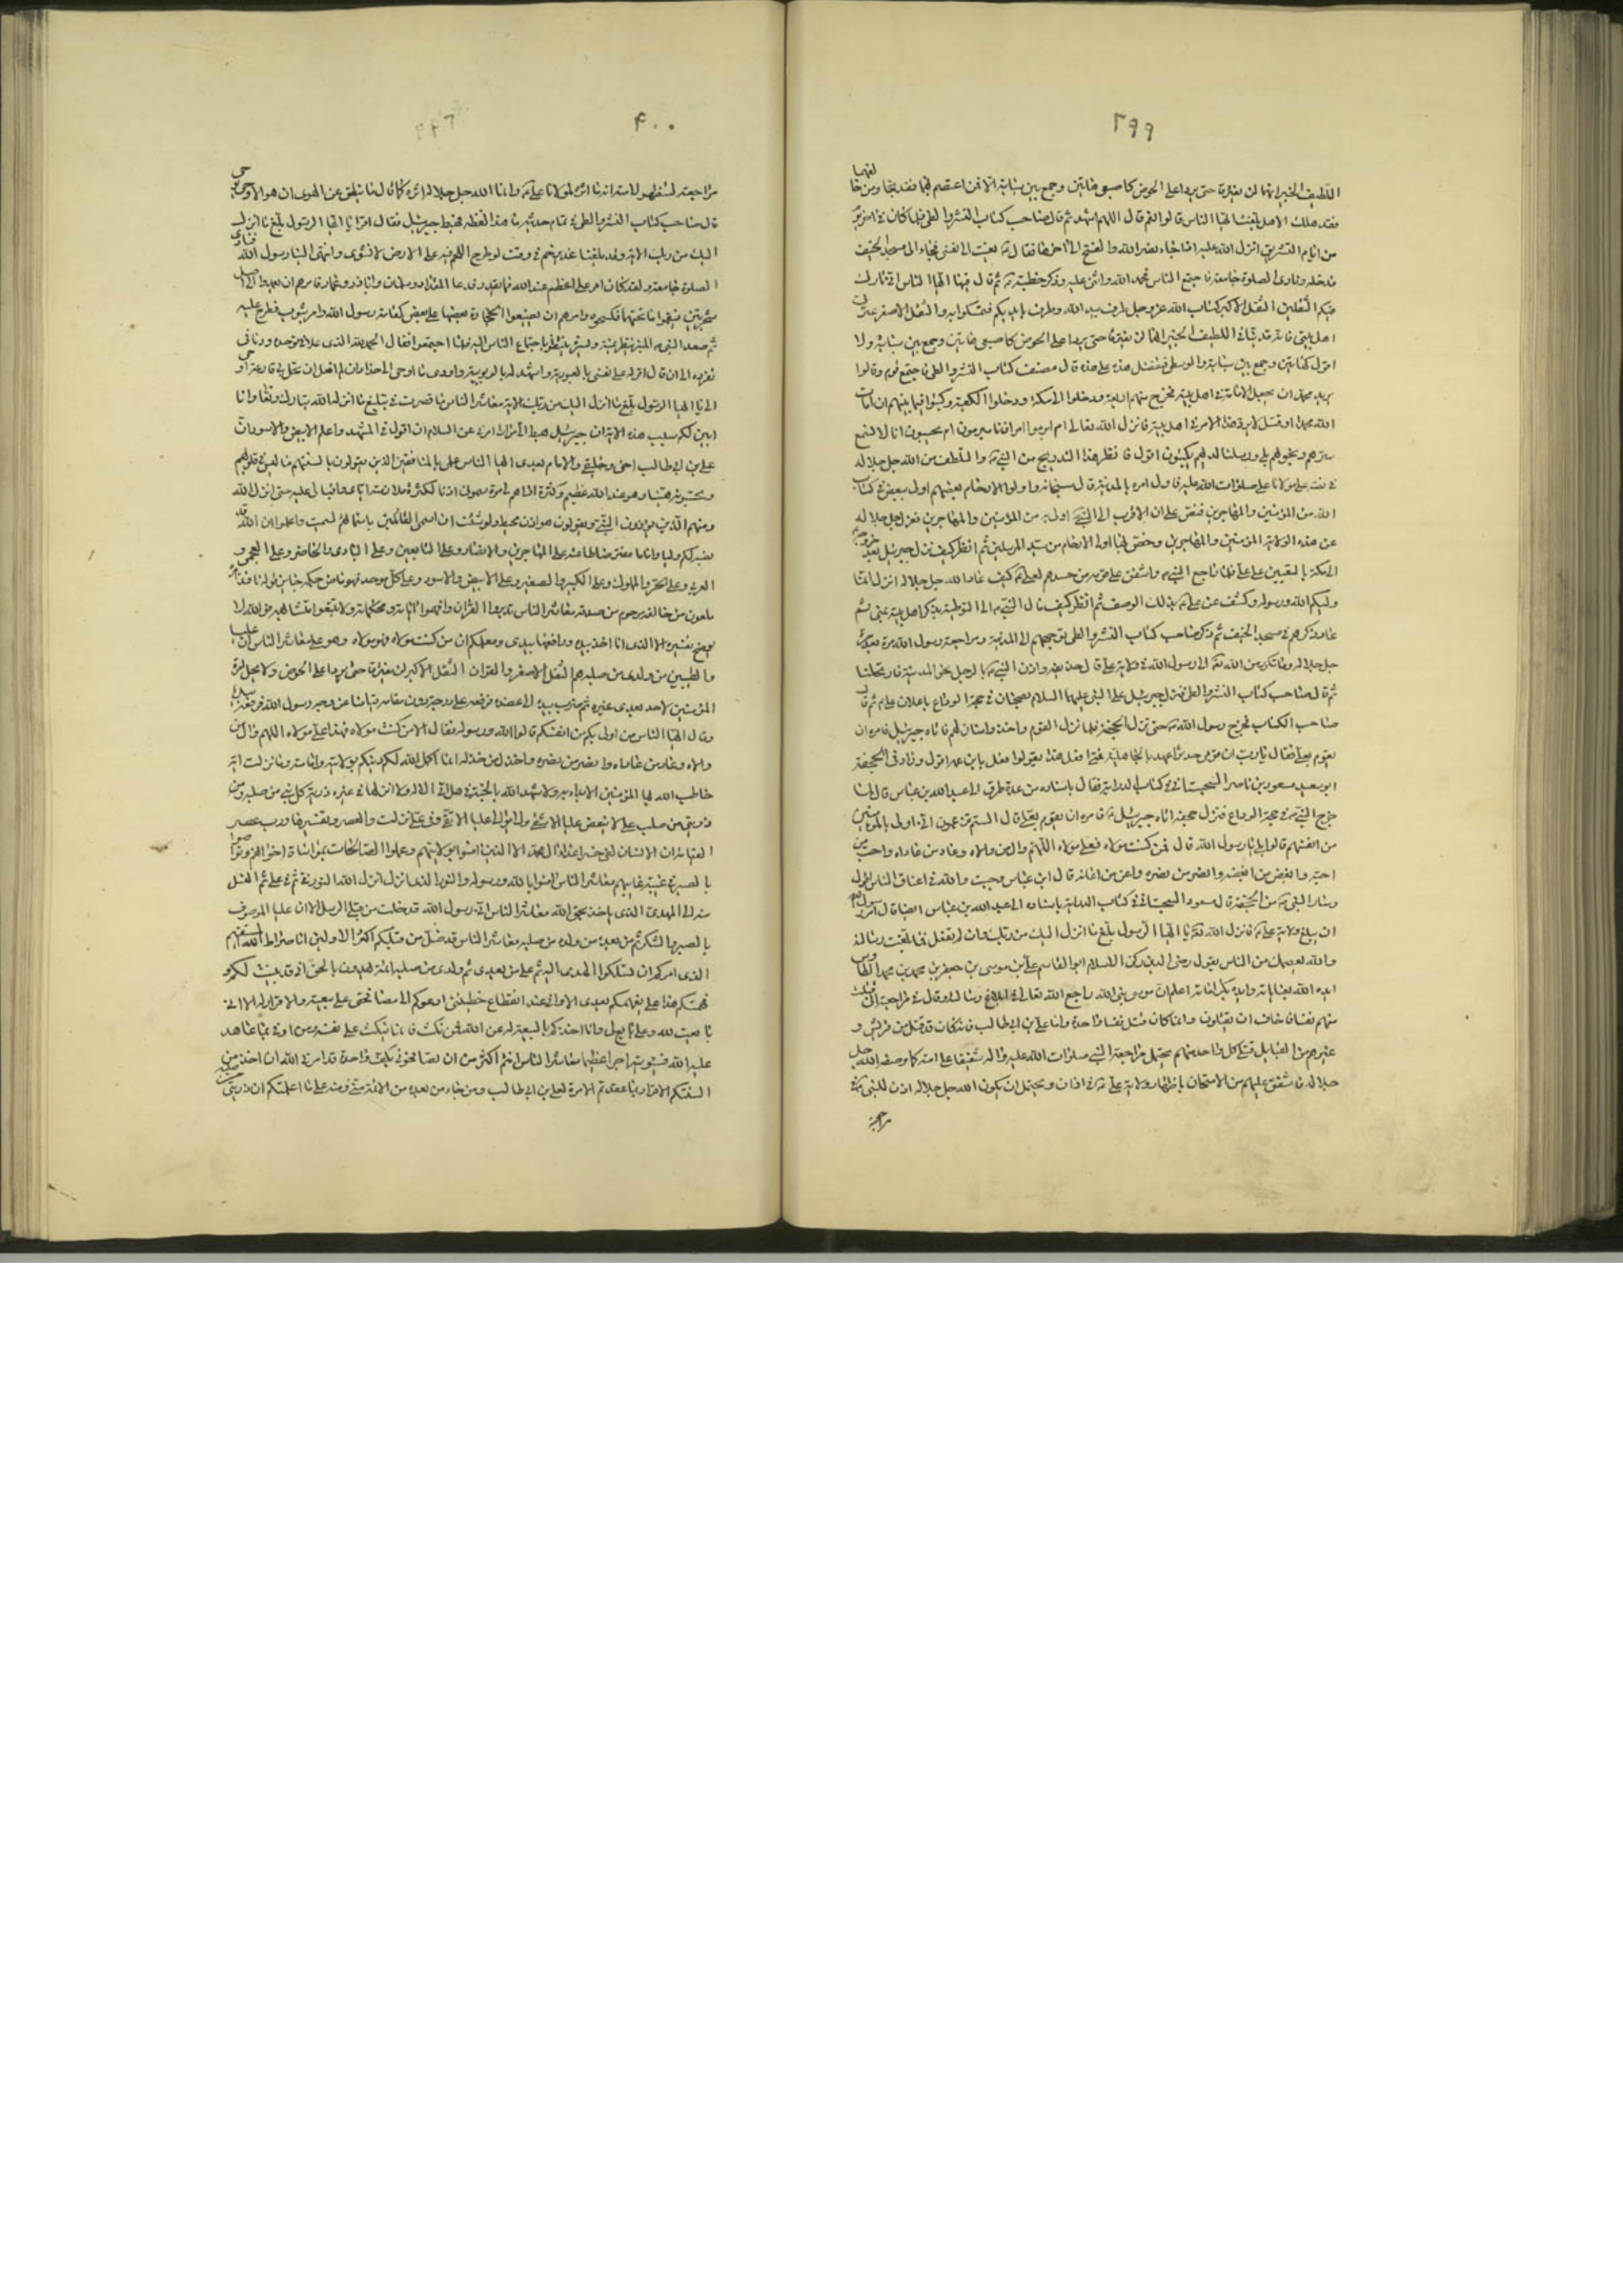 ٣٩٩
اللطيف الخبير انهما لن يفترقا حتى يردا على الحوض كاصبعى هاتين وجمع بين سبابتيه الا فمن اعتصم بهما فقد نجا ومن خالفهما
فقد هلك الا هل بلغت ايها الناس قالوا نعم قال اللهم اشهد ثم قال صاحب كتاب النشر والطى فلما كان فى اخر يوم
من ايام التشريق انزل الله عليه اذا جاء نصر الله والفتح الى اخرها فقال نعيت الى نفسى فجاء الى مسجد الخيف
فدخله ونادى الصلوة جامعة فاجتمع الناس فحمد الله واثنى عليه وذكر خطبته ثم قال فيها ايها الناس انى تارك
فيكم الثقلين الثقل الاكبر كتاب الله عز وجل طرف بيد الله وطرف بايديكم فتمسكوا به والثقل الاصغر عترتى
اهل بيتى فانه قد نبأنى اللطيف الخبير انهما لن يفترقا حتى يردا على الحوض كاصبعى هاتين وجمع بين سبابتيه ولا
اقول كهاتين وجمع بين سبابته والوسطى فتفضل هذه على هذه قال مصنف كتاب النشر والطى فاجتمع قوم وقالوا
يريد محمد ان يجعل الامامة فى اهل بيته فخرج منهم اربعة ودخلوا الى مكة ودخلوا الكعبة وكتبوا فيما بينهم ان امات
الله محمدا او قتل لا يرد هذا الامر فى اهل بيته فانزل الله تعالى ام ابرموا امرا فانا مبرمون ام يحسبون انا لا نسمع
سرهم ونجويهم بلى ورسلنا لديهم يكتبون اقول فانظر هذا التدريج من النبى والتلطف من الله جل جلاله
فى نصه على مولانا على صلوات الله عليه فاول امره بالمدينة قال سبحانه واولوا الارحام بعضهم اولى ببعض فى كتاب
الله من المؤمنين والمهاجرين فنص على ان الاقرب الى النبى اولى به من المؤمنين والمهاجرين فعزل جل جلاله
عن هذه الولاية المؤمنين والمهاجرين وخص بها اولى الارحام من سيد المرسلين ثم انظر كيف نزل جبرئيل بعد خروجه
الى مكة بالتعيين على على فلما راجع النبى واشفق على قومه من حسدهم لعلى كيف عاد الله جل جلاله انزل انما
وليكم الله ورسوله وكشف عن على بذلك الوصف ثم انظر كيف مال النبى الى التوطئة بذكر اهل بيته بمنى ثم
عاد ذكرهم فى مسجد الخيف ثم ذكر صاحب كتاب النشر والطى توجههم الى المدينة ومراجعة رسول الله مرة بعد مرة لله
جل جلاله وما تكرر من الله تعالى الى رسول الله فى ولاية على قال حذيفة واذن النبى بالرحيل نحو المدينة فارتحلنا
ثم قال صاحب كتاب النشر والطى فنزل جبرئيل على النبى عليهما السلام بضجنان فى حجة الوداع باعلان على ثم قال
صاحب الكتاب فخرج رسول الله حتى نزل الجحفة فلما نزل القوم واخذوا منازلهم فاتاه جبرئيل فامره ان
يقوم بعلى فقال يا رب ان قومى حديثوا عهد بالجاهلية فمتى افعل هذا يقولوا فعل بابن عمه اقول وزاد فى الجحفة
ابو سعيد مسعود بن ناصر السجستانى فى كتاب الدراية فقال باسناده من عدة طرق الى عبد الله بن عباس قال لما
خرج النبى فى حجة الوداع فنزل جحفة اتاه جبرئيل فامره ان يقوم بعلى قال الستم تزعمون انى اولى بالمؤمنين
من انفسهم قالوا بلى يا رسول الله قال فمن كنت مولاه فعلى مولاه اللهم وال من والاه وعاد من عاداه واحب من
احبه وابغض من ابغضه وانصر من نصره واعن من اعانه قال ابن عباس وجبت والله فى اعناق الناس اقول
وسار النبى من الجحفة قال مسعود السجستانى فى كتاب الدراية باسناده الى عبد الله بن عباس ايضا قال امر رسول الله
ان يبلغ ولاية على فانزل الله تعالى يا ايها الرسول بلغ ما انزل اليك من ربك وان لم تفعل فما بلغت رسالته
والله يعصمك من الناس يقول رضى الدين ركن الاسلام ابو القاسم على بن موسى بن جعفر بن محمد بن محمد الطاوس
ايده الله بعناياته وايده بكراماته اعلم ان موسى نبى الله راجع الله تعالى فى ابلاغ رسالته وقال فى مراجعته انى قتلت
منهم نفسا فاخاف ان يقتلون وانما كان قتل نفسا واحدة واما على بن ابى طالب فانه كان قد قتل من قريش و
غيرهم من القبايل قتلى كل واحد منهم يحتمل مراجعة النبى صلوات الله عليه واله شفيقا على امته كما وصفه الله جل
جلاله فاشفق عليهم من الامتحان باظهار ولاية على فى اوان ويحتمل ان يكون الله جل جلاله اذن للنبى فى
مراجعته
۴۰۰
مراجعته لتظهر لامته انه ما اثره لمولانا على وانما الله جل جلاله اثره كما قال ما ينطق عن الهوى ان هو الا وحى يوحى
قال صاحب كتاب النشر والطى فى تمام حديثه ما هذا لفظه فهبط جبرئيل فقال اقرأ يا ايها الرسول بلغ ما انزل
اليك من ربك الاية وقد بلغنا غدير خم فى وقت لو طرح اللحم فيه على الارض لانشوى وانتهى الينا رسول الله فنادى
الصلوة جامعة ولقد كان امر على اعظم عند الله مما يقدر فدعا المقداد وسلمان وابا ذر وعمار فامرهم ان يعمدوا الى اصل
شجرتين فيقموا ما تحتهما فكسحوه وامرهم ان يضعوا الحجارة بعضها على بعض كقامة رسول الله وامر بثوب فطرح عليه
ثم صعد النبى المنبر ينظر يمنة ويسرة ينتظر اجتماع الناس اليه فلما اجتمعوا فقال الحمد لله الذى علا فى توحده ودنا فى
تفرده الى ان قال اقر له على نفسى بالعبودية واشهد له بالربوبية واؤدى ما اوحى الى حذار ان لم افعل ان تحل بى قارعة اوحى
الى يا ايها الرسول بلغ ما انزل اليك من ربك الاية معاشر الناس ما قصرت فى تبليغ ما انزله الله تبارك وتعالى وانا
ابين لكم سبب هذه الاية ان جبرئيل هبط الى مرارا امرنى عن السلام ان اقول فى المشهد واعلم الابيض والاسود ان
على بن ابى طالب اخى وخليفتى والامام بعدى ايها الناس علمى بالمنافقين الذين يقولون بالسنتهم ما ليس فى قلوبهم
ويحسبونه هينا وهو عند الله عظيم وكثرة اذاهم لى مرة سمونى اذنا لكثرة ملازمته اياى واقبالى عليه حتى انزل الله
ومنهم الذين يؤذون النبى ويقولون هو اذن محيط ولو شئت ان اسمى القائلين باسمائهم لسميت واعلموا ان الله قد
نصبه لكم وليا واماما مفترضا طاعته على المهاجرين والانصار وعلى التابعين وعلى البادى والحاضر وعلى العجمى و
العربى وعلى الحر والمملوك وعلى الكبير والصغير وعلى الابيض والاسود وعلى كل موحد فهو ماض حكمه جايز قوله نافذ امره
ملعون من خالفه مرحوم من صدقه معاشر الناس تدبروا القران وافهموا اياته ومحكماته ولا تتبعوا متشابهه فوالله لا
يوضح تفسيره الا الذى انا اخذ بيده ورافعها بيدى ومعلمكم ان من كنت مولاه فهو مولاه وهو على معاشر الناس ان عليا
والطيبين من ولدى من صلبه هم الثقل الاصغر والقران الثقل الاكبر لن يفترقا حتى يردا على الحوض ولا يحل امرة
المؤمنين لاحد بعدى غيره ثم ضرب بيده الى عضده فرفعه على درجة دون مقامه متيامنا عن وجه رسول الله فرفعه بيده
وقال ايها الناس من اولى بكم من انفسكم قالوا الله ورسوله فقال الا من كنت مولاه فهذا على مولاه اللهم وال من
والاه وعاد من عاداه وانصر من نصره واخذل من خذله انما اكمل الله لكم دينكم بولايته وامامته وما نزلت اية
خاطب الله بها المؤمنين الا بدأ به ولا شهد الله بالجنة فى هل اتى الا له ولا انزلها فى غيره ذرية كل نبى من صلبه و
ذريتى من صلب على لا يبغض عليا الا شقى ولا يوالى عليا الا تقى وفى على نزلت والعصر وتفسيرها ورب عصر
القيامة ان الانسان لفى خسر اعداء ال محمد الا الذين امنوا بولايتهم وعملوا الصالحات بمواساة اخوانهم وتواصوا
بالصبر فى غيبة غايبهم معاشر الناس امنوا بالله ورسوله والنور الذى انزل انزل الله النور فى ثم فى على ثم النسل
منه الى المهدى الذى ياخذ بحق الله معاشر الناس انى رسول الله قد خلت من قبلى الرسل الا ان عليا الموصوف
بالصبر والشكر ثم من بعده من ولده من صلبه معاشر الناس قد ضل من قبلكم اكثر الاولين انا صراط الله المستقيم
الذى امركم ان تسلكوا الهدى اليه ثم على من بعدى ثم ولدى من صلبه ائمة يهدون بالحق انى قد بينت لكم و
فهمتكم هذا على يفهمكم بعدى الا وانى عند انقطاع خطبتى ادعوكم الى مصافحتى على بيعته والاقرار له الا انى
بايعت لله وعلى بايع لى وانا اخذكم بالبيعة له عن الله فمن نكث فانما ينكث على نفسه ومن اوفى بما عاهد
عليه الله فسيؤتيه اجرا عظيما معاشر الناس انتم اكثر من ان تصافحونى بكف واحدة قد امرنى الله ان اخذ من
السنتكم الاقرار بما عقدتم الامرة لعلى بن ابى طالب ومن جاء من بعده من الائمة منى ومنه على ما اعلمتكم ان ذريتى